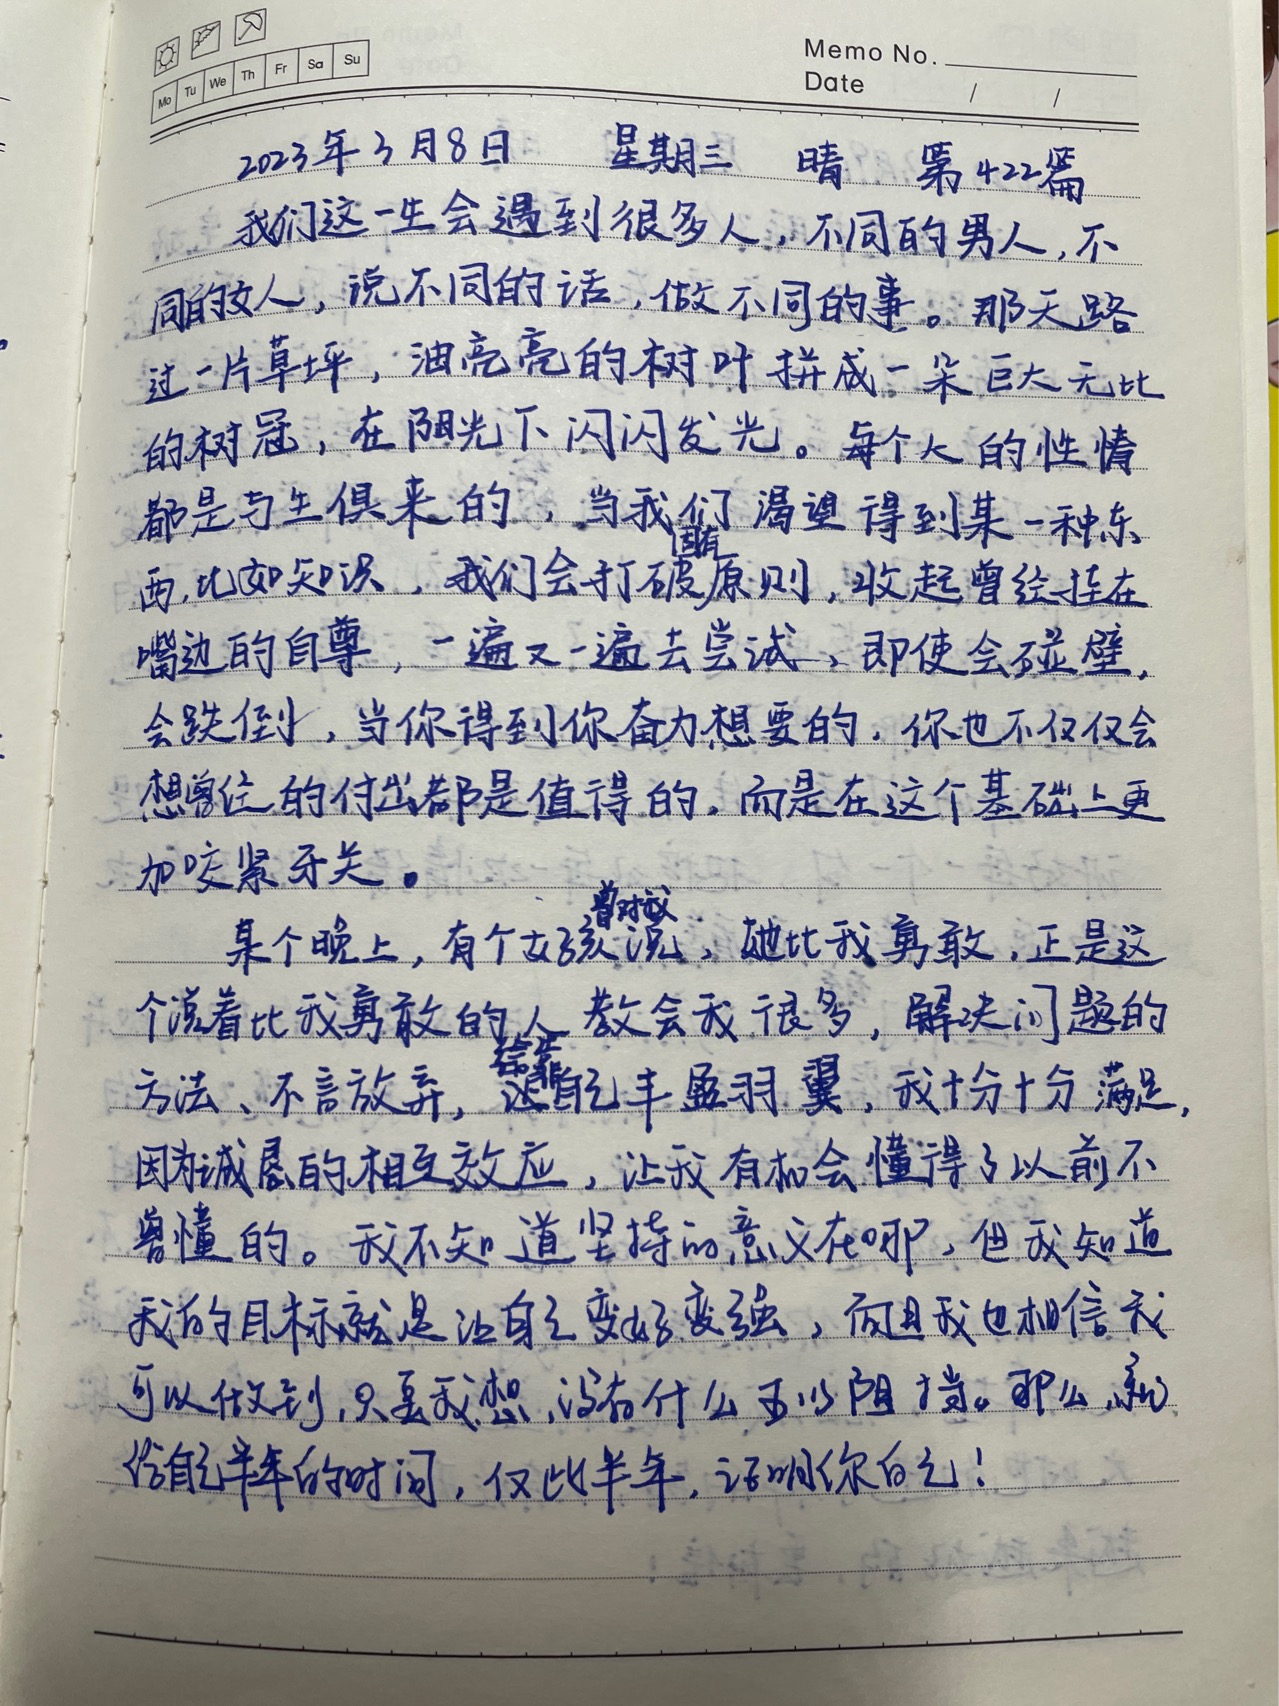 Mo Tu We Th Fr Sa Su
Memo No.
Date / /
2023年3月8日 星期三 晴 第422篇
我们这一生会遇到很多人，不同的男人，不
同的女人，说不同的话，做不同的事。那天路
过一片草坪，油亮亮的树叶拼成一朵巨大无比
的树冠，在阳光下闪闪发光。每个人的性情
都是与生俱来的，当我们渴望得到某一种东
西，比如知识，我们会打破固有原则，收起曾经挂在
嘴边的自尊，一遍又一遍去尝试，即使会碰壁，
会跌倒，当你得到你奋力想要的，你也不仅仅会
想曾经的付出都是值得的，而是在这个基础上更
加咬紧牙关。
某个晚上，有个女孩曾对我说，她比我勇敢，正是这
个说着比我勇敢的人教会我很多，解决问题的
方法、不言放弃，自己丰盈羽翼，我十分十分满足，
因为诚恳的相互效应，让我有机会懂得了以前不
曾懂的。我不知道坚持的意义在哪，但我知道
我的目标就是让自己变好变强，而且我也相信我
可以做到，只要我想，没有什么可以阻挡。那么，就
给自己半年的时间，仅此半年，证明你自己！